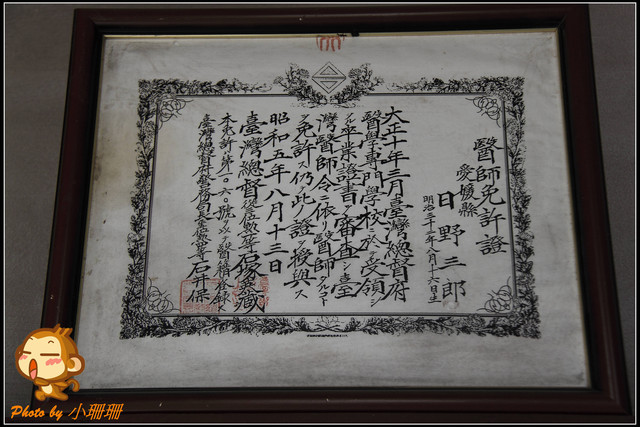 醫師免許證
愛媛縣
日野三郎
明治三十三年八月十六日生
大正十年三月臺灣總督府
醫學專門學校ニ於テ受領シ
タル卒業證書ヲ審査シ臺
灣醫師令ニ依リ醫師タルコト
ヲ免許ス仍テ此ノ證ヲ授與ス
昭和五年八月十三日
臺灣總督 石塚英藏
本免許ハ第一〇六〇號ヲ以テ醫籍ニ登録ス
臺灣總督府警務局長 石井保
Photo by 小珊珊